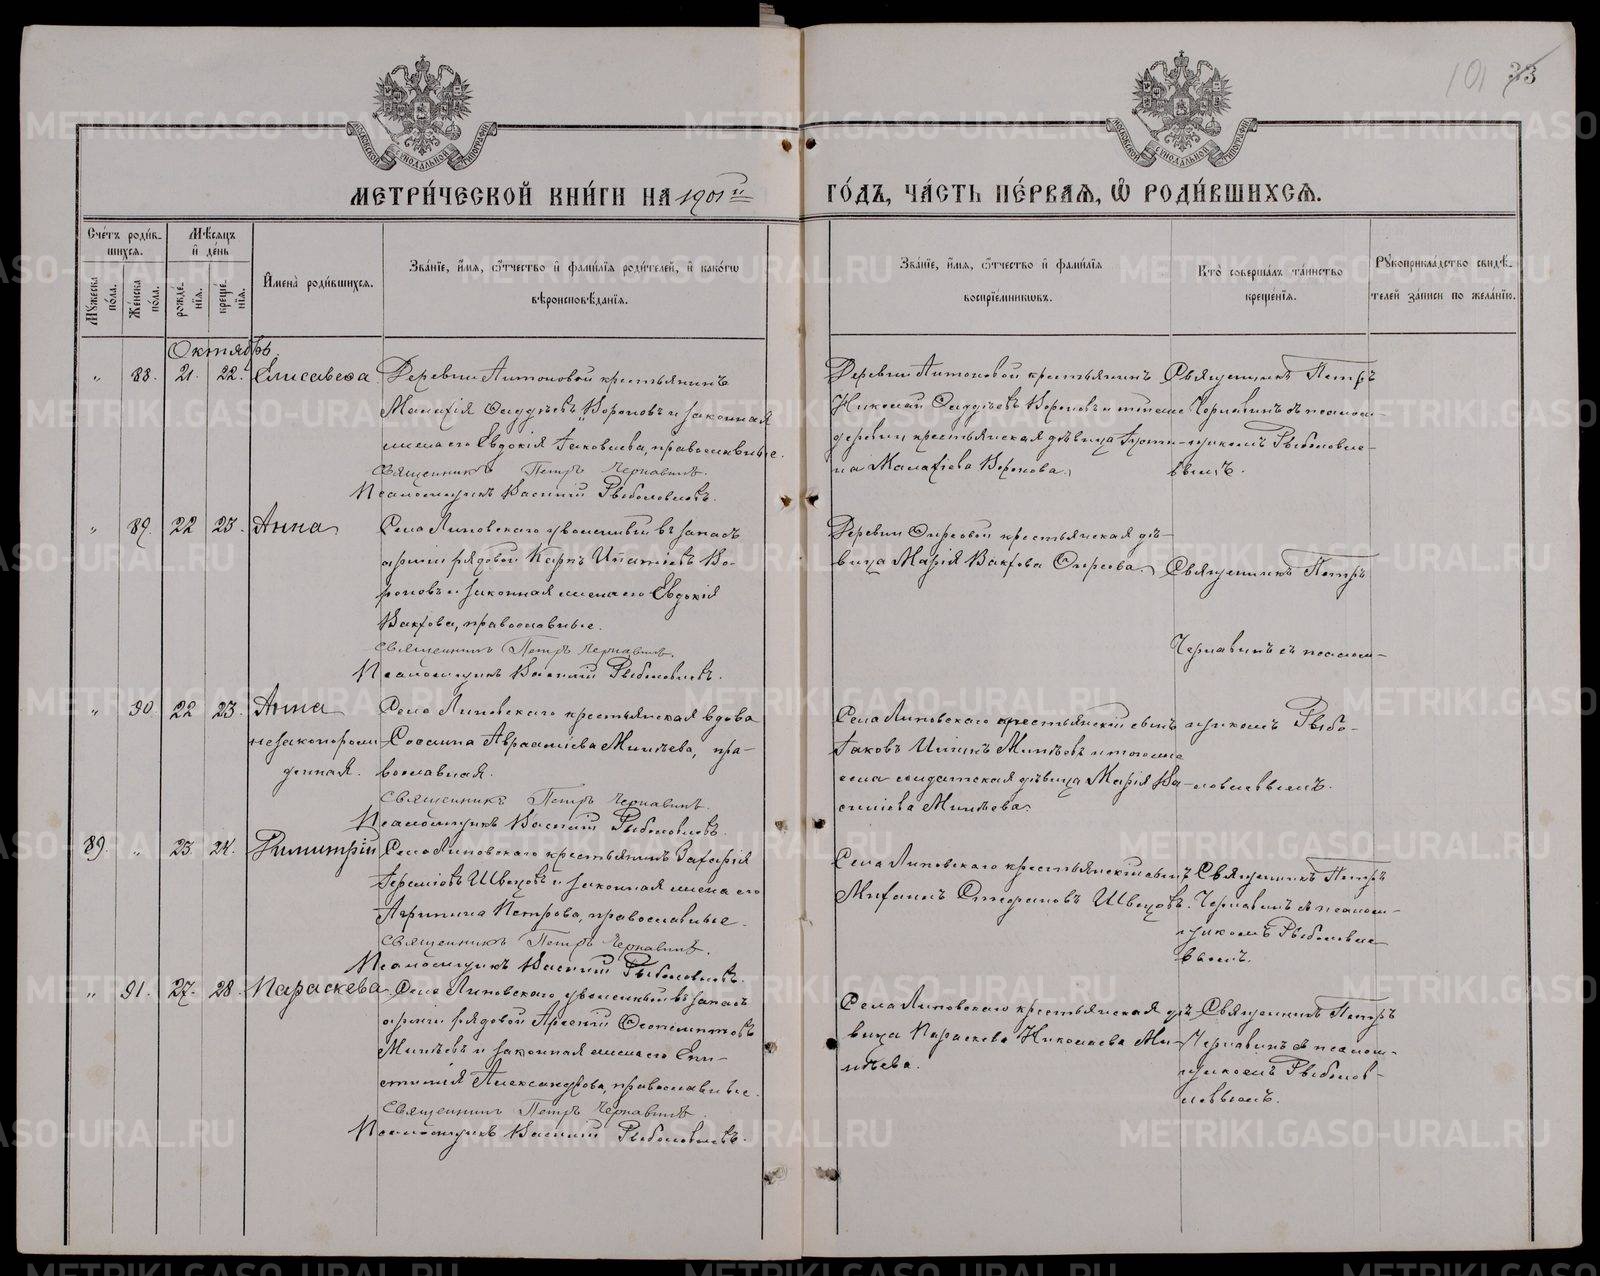 101 33
МЕТРИ́ЧЕСКОЙ КНИ́ГИ НА 1901й ГО́ДЪ, ЧА́СТЬ ПЕ́РВАѦ, Ѽ РОДИ́ВШИХСѦ.
Сче́тъ роди́в-
шихся.
Мѣ́сяцъ
и҆ де́нь
Мꙋжеска по́ла.
Же́нска по́ла.
рожде́-
нїя.
креще́-
нїя.
И҆мена̀ роди́вшихся.
Зва́нїе, и҆́мя, ѻ҆́тчество и҆ фами́лїя роди́телей, и҆ како́гѡ
вѣроисповѣ́данїя.
Зва́нїе, и҆́мя, ѻ҆́тчество и҆ фами́лїя
воспрїе́мникѡвъ.
Кто̀ соверша́лъ та́инство
креще́нїя.
Рꙋкоприкла́дство свидѣ́-
телей за́писи по жела́нїю.
Октябрь.
" 88. 21. 22. Елисавеѳа
Деревни Антоновой крестьянинъ
Малахія Ѳаддѣевъ Вороновъ и законная
жена его Евдокія Іаковлева, православные.
Священникъ Петръ Чернавинъ.
Псаломщикъ Василій Рыболовлевъ.
Деревни Антоновой крестьянинъ
Николай Ѳаддѣевъ Вороновъ и тойже
деревни крестьянская дѣвица
на Малахіева Воронова.
Священникъ Петръ
Чернавинъ съ псалом-
щикомъ Рыболовле-
вымъ.
" 89. 22 23. Анна
Села Липовскаго уволенный въ запасъ
арміи рядовой Карпъ Игнатіевъ Во-
роновъ и законная жена его Евдокія
Вакхова, православные.
Священникъ Петръ Чернавинъ.
Псаломщикъ Василій Рыболовлевъ.
Деревни крестьянская дѣ-
вица Марія Вакхова
Священникъ Петръ
Чернавинъ съ псалом-
щикомъ Рыбо-
ловлевымъ.
" 90. 22 23. Анна
незаконорож-
денная.
Села Липовскаго крестьянская вдова
Сосанна Аврааміева Минѣева, пра-
вославная.
Священникъ Петръ Чернавинъ.
Псаломщикъ Василій Рыболовлевъ.
Села Липовскаго крестьянскій сынъ
Іаковъ Минѣевъ и тогоже
села солдатская дѣвица Марія Ва-
силіева Минѣева.
89. " 23. 24. Димитрій
Села Липовскаго крестьянинъ Захарія
Іереміевъ Швецовъ и законная жена его
Агрипина Петрова, православные.
Священникъ Петръ Чернавинъ.
Псаломщикъ Василій Рыболовлевъ.
Села Липовскаго крестьянскій сынъ
Михаилъ Стефановъ Швецовъ.
Священникъ Петръ
Чернавинъ съ псалом-
щикомъ Рыболовле-
вымъ.
" 91. 27. 28. Параскева
Села Липовскаго уволенный въ запасъ
арміи рядовой Арсеній Ѳеоктистовъ
Минѣевъ и законная жена его Епи-
стимія Александрова, православные.
Священникъ Петръ Чернавинъ.
Псаломщикъ Василій Рыболовлевъ.
Села Липовскаго крестьянская дѣ-
вица Параскева Николаева Ми-
нѣева.
Священникъ Петръ
Чернавинъ съ псалом-
щикомъ Рыболов-
левымъ.
METRIKI.GASO-URAL.RU